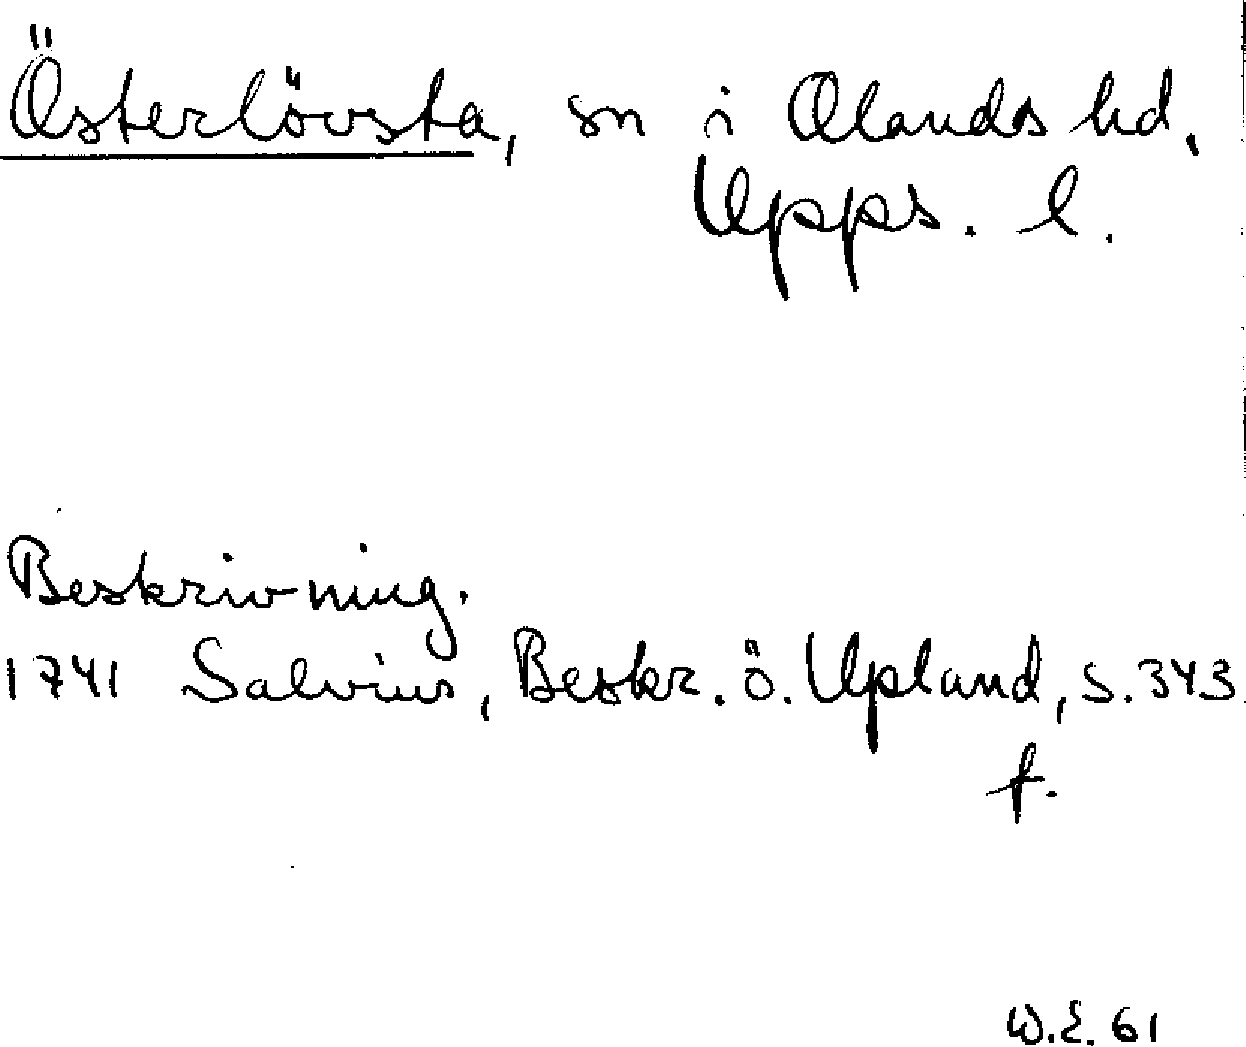 Österlövsta, sn i Olands hd,
Upps. l.
Beskrivning.
1741 Salvius, Beskr. ö. Upland, s. 343
f.
W.E. 61